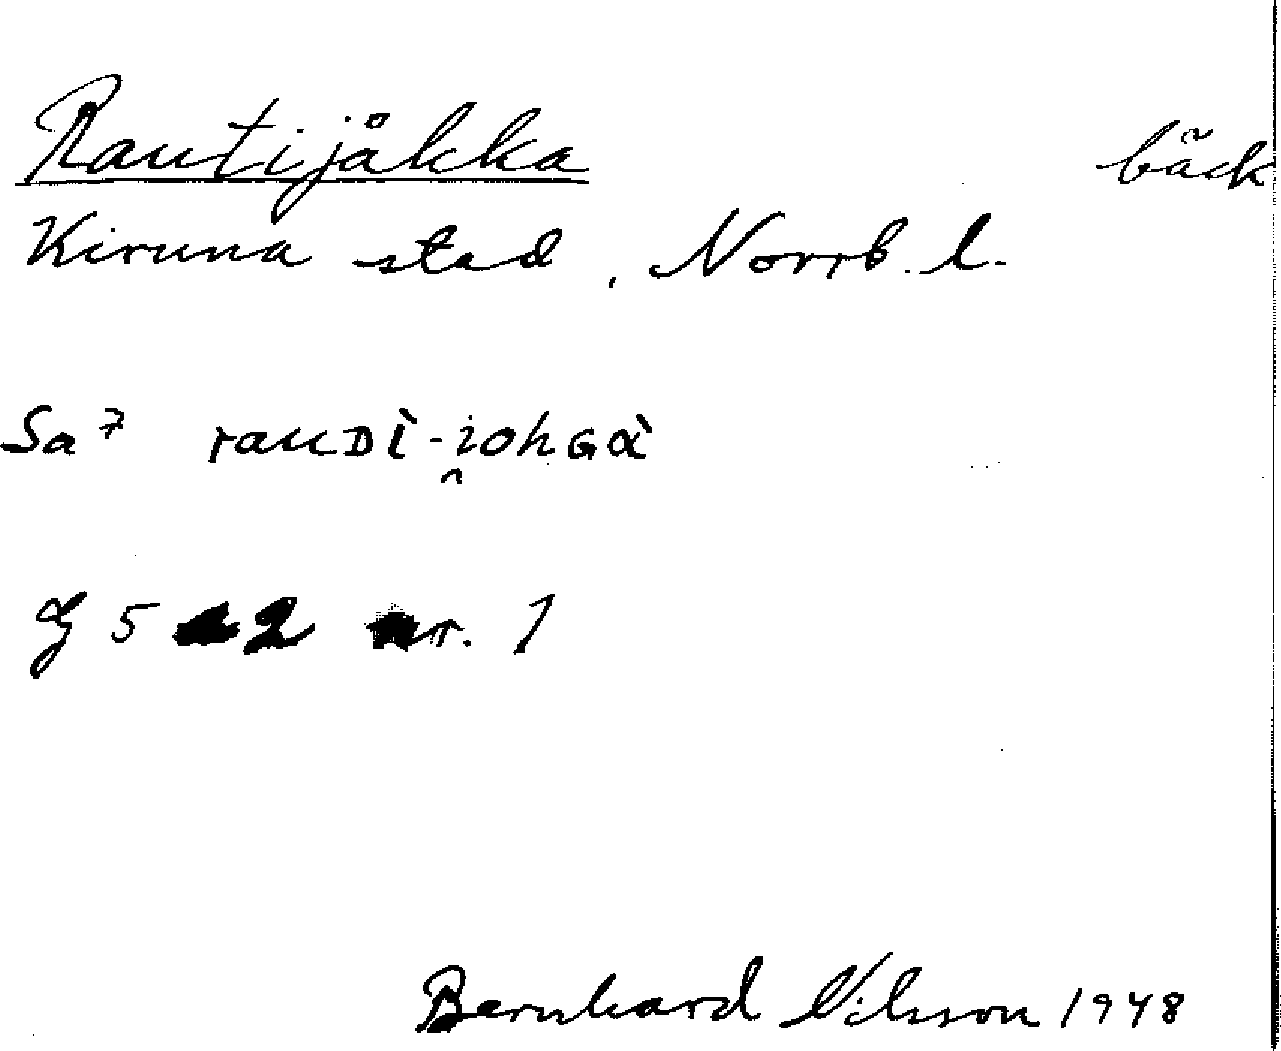 Rautijåkka bäck
Kiruna stad, Norrb. l.
Sa 7 rauᴅì-i̯ohɢɑ̀
nr. 1
Bernhard Nilsson 1948